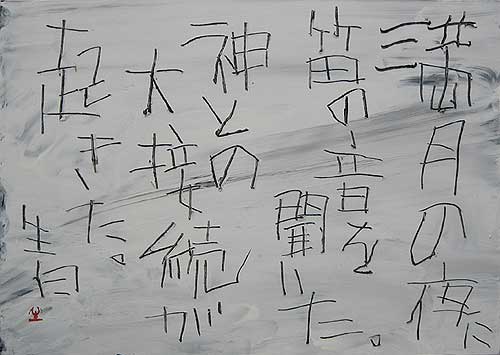 満月の夜に
笛の音を
聞いた。
神との
大接続が
起きた。